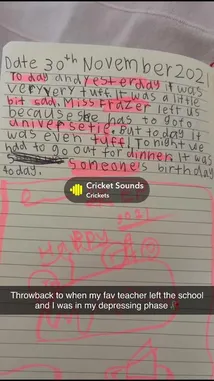 Date 30th November 2021
To day and yesterday it was
very very tuff. It was a little
bit sad. Miss Frazer left us
because she has to goto
universetie. But today it
was even tuff. Tonight we
had to go out for dinner. It was
someone's birthday
today.
Cricket Sounds
Crickets
2021
Happy
Throwback to when my fav teacher left the school
and I was in my depressing phase